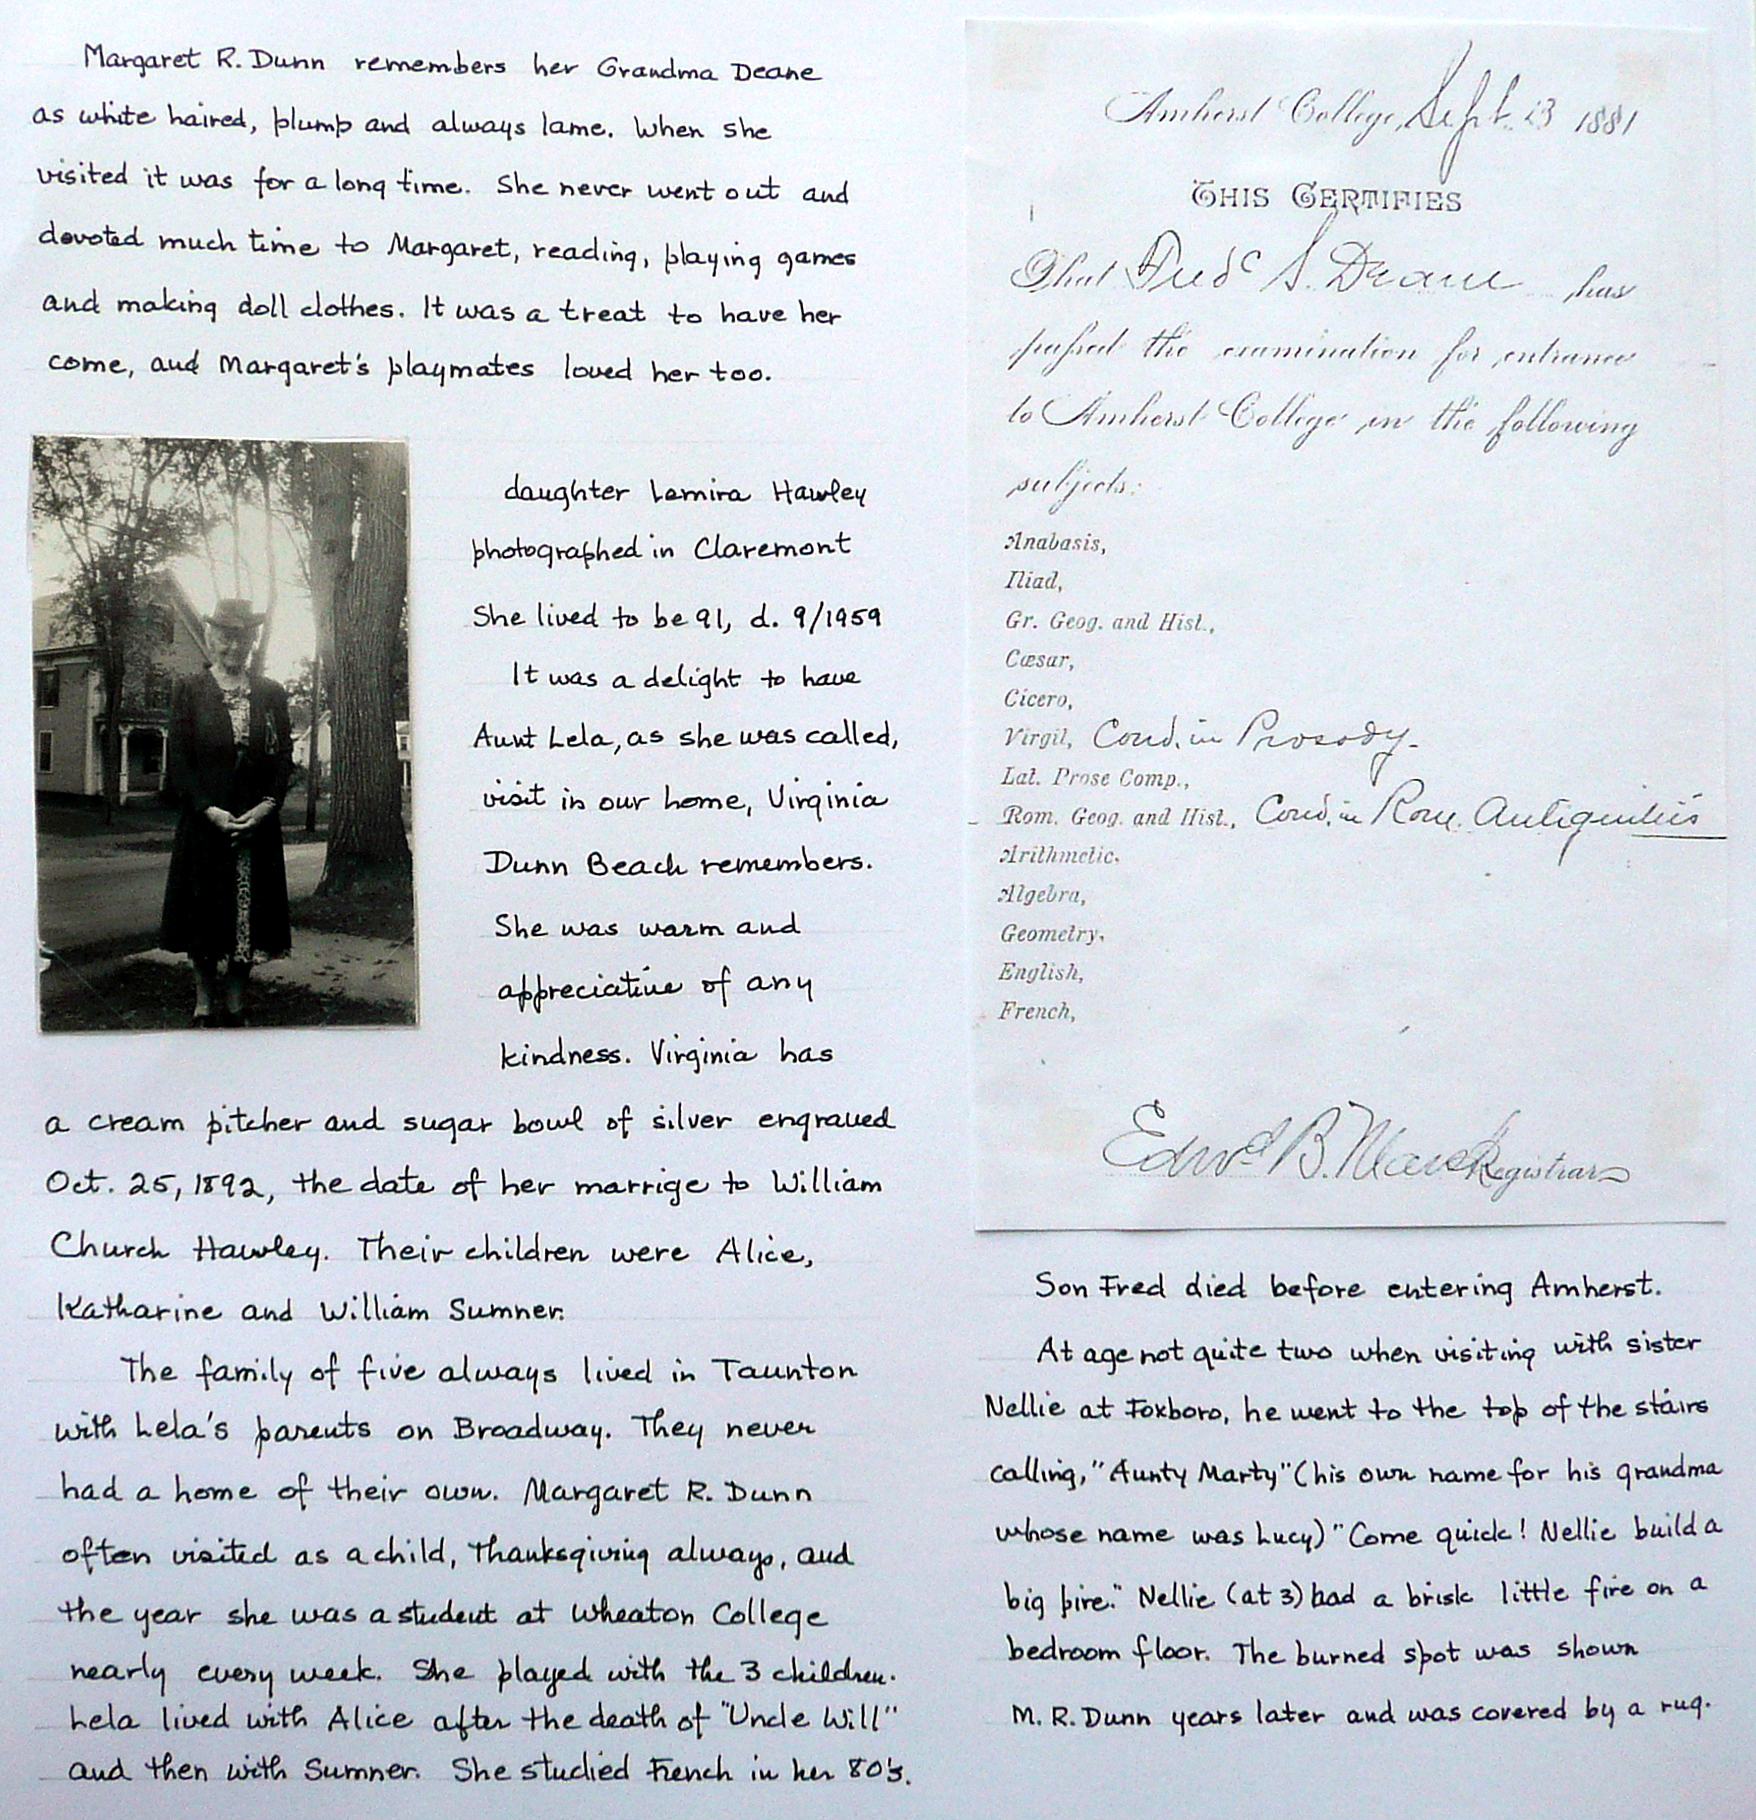 Margaret R. Dunn remembers her Grandma Deane
as white haired, plump and always lame. When she
visited it was for a long time. She never went out and
devoted much time to Margaret, reading, playing games
and making doll clothes. It was a treat to have her
come, and Margaret's playmates loved her too.
daughter Lemira Hawley
photographed in Claremont
She lived to be 91, d. 9/1959
It was a delight to have
Aunt Lela, as she was called,
visit in our home, Virginia
Dunn Beach remembers.
She was warm and
appreciative of any
kindness. Virginia has
a cream pitcher and sugar bowl of silver engraved
Oct. 25, 1892, the date of her marrige to William
Church Hawley. Their children were Alice,
Katharine and William Sumner.
The family of five always lived in Taunton
with Lela's parents on Broadway. They never
had a home of their own. Margaret R. Dunn
often visited as a child, Thanksgiving always, and
the year she was a student at Wheaton College
nearly every week. She played with the 3 children.
Lela lived with Alice after the death of "Uncle Will"
and then with Sumner. She studied French in her 80's.
Amherst College, Sept. 13 1881
THIS CERTIFIES
That Fredc S. Deane has
passed the examination for entrance
to Amherst College in the following
subjects:
Anabasis,
Iliad,
Gr. Geog. and Hist.,
Cæsar,
Cicero,
Virgil, Cond. in Prosody.
Lat. Prose Comp.,
Rom. Geog. and Hist., Cond. in Rom. Antiquities
Arithmetic,
Algebra,
Geometry,
English,
French,
Edwd B. Marsh Registrar
Son Fred died before entering Amherst.
At age not quite two when visiting with sister
Nellie at Foxboro, he went to the top of the stairs
calling, "Aunty Marty" (his own name for his grandma
whose name was Lucy) "Come quick! Nellie build a
big bire." Nellie (at 3) had a brisk little fire on a
bedroom floor. The burned spot was shown
M. R. Dunn years later and was covered by a rug.